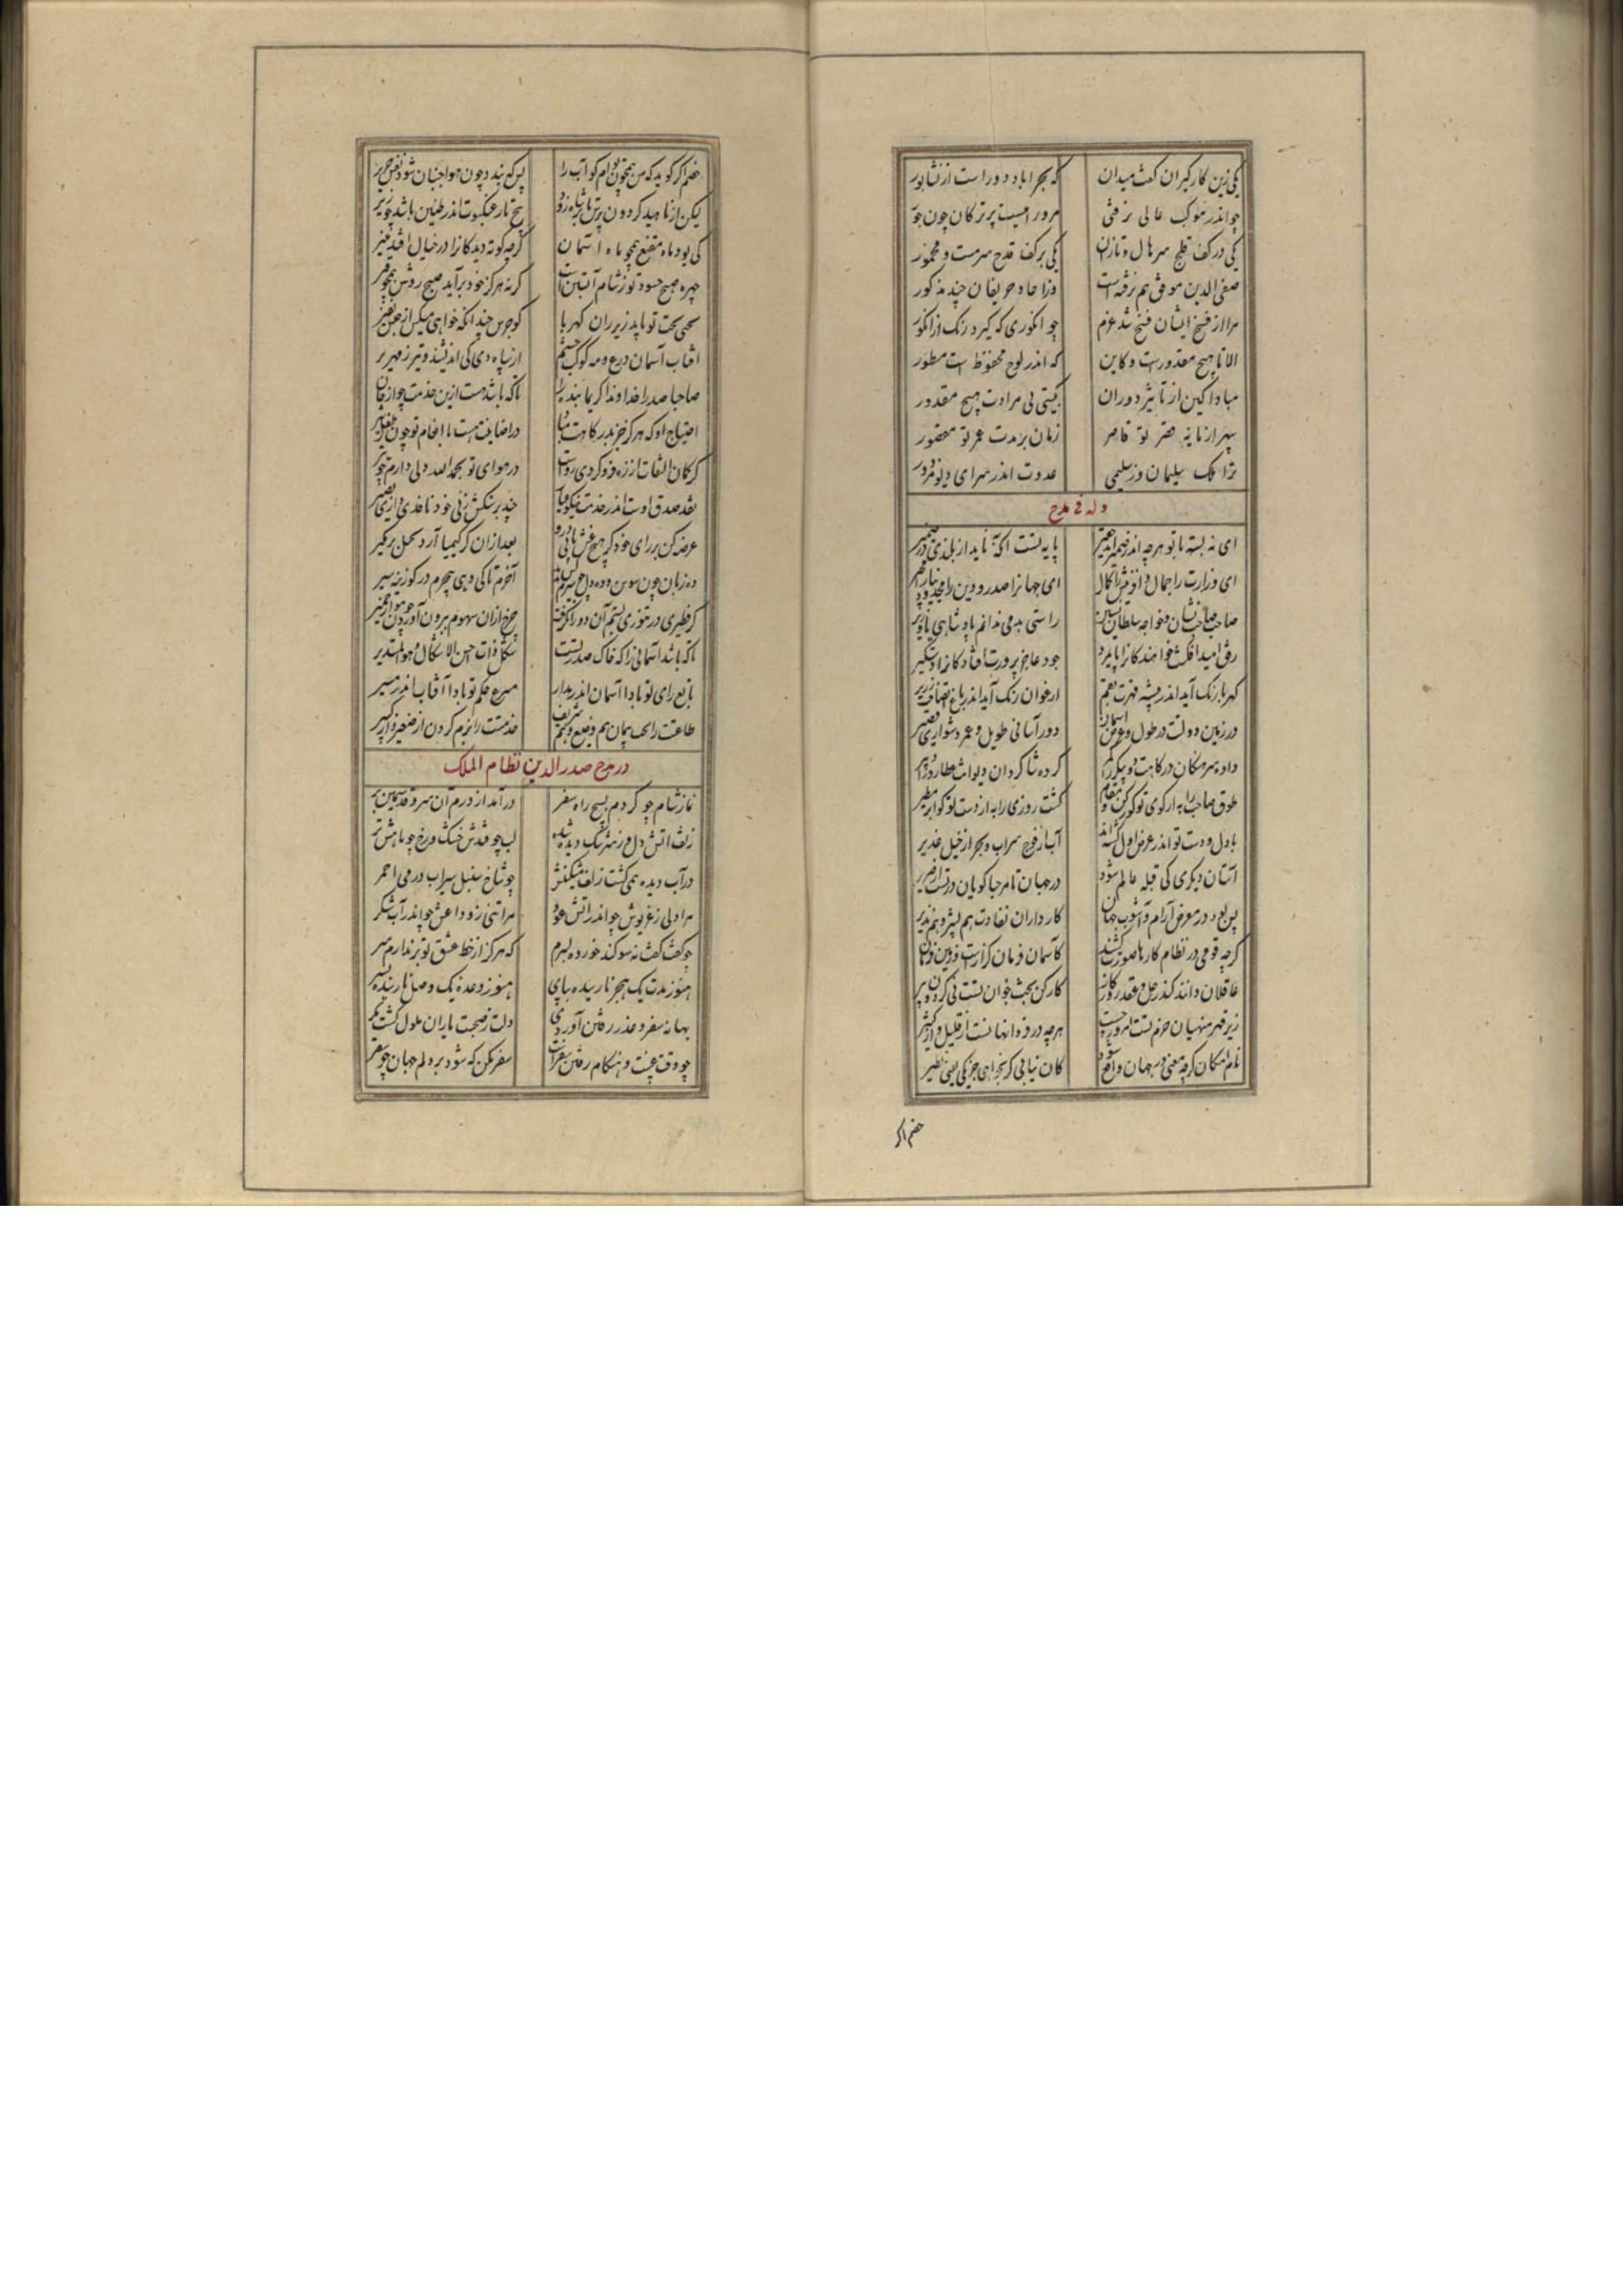 یکی زین کارگیران گفت میدان
که بحراباد دورا ست از نشابور
چو اندر موکب عالی نرفتی
مرو را نیست پر ترکان چون
یکی در کف قلج سرهال و تازان
یکی بر کف قدح سرمست و مخمور
صفی الدین موفق هم نرفته است
وزآحاد حریفان چند مذکور
مرا از فسخ ایشان فسخ شد عزم
چو انگوری که گیرد رنک از انکور
الا تا هیچ مقدورست و کاین
که اندر لوح محفوظ است مسطور
مبادا کین از تاثیر دوران
بگیتی بی مرادت هیچ مقدور
سپهر از پایه قصر تو قاصر
زمان بر مدت عمر تو مقصور
ترا ملک سلیمان وز سلیمی
عدوت اندر سرای دیو مزدور
وله فی مدح
ای نه بسته با تو هرچه اندر
پایه تست آنکه ناید از بلندی در ضمیر
ای وزارت را جمال و آفرینش را کمال
ای جهانرا صدر و دین را مجد
صاحب صاحب نشان و خواجه سلطان نشین
راستی به می ندانم پادشاهی یا وزیر
رفق امید افکنت خواهندکانرا پایمرد
جود عاجز پرورت افتادکانرا دستگیر
کهربا رنک آید اندر بیشه قهرت بقم
ارغوان رنک آید اندر باغ الطافت زریر
در زمین دولت در طول و عرض آسمان
دور آسانی طویل و عمر دشواری قصیر
داده سرهنکان درکاهت دو پیکر را کمر
کرده شاکردان دیوانت عطارد را دبیر
کشت روزی را به از دست تو کو ابر مطیر
با دل و دست تو اندر عرض اول کشته اند
آب از فوج سراب و بحر از خیل غدیر
آستان دیکری کی قبله عالم شود
در جهان تا مرحبا کویان درتست از صریر
پس بود در معرض آرام و آشوب جهان
کارداران نفاذت هم بشیر و هم نذیر
کرچه قومی در نظام کارها صورت کشند
کآسمان فرمان گزارست و زمین فرمان
عاقلان دانند کندر حل و عقد روزکار
کارکن بخت جوان تست نی کردون پیر
زیر قهر منهیان حزم تست امروز
هرچه در فردا نهانست از قلیل و از کثیر
نام امکان کرچه معنی در جهان واقع شود
کان نیابی کر بخواهی جز یکی یعنی نظیر
خصم اگر
خصم اگر کوید که من همچون توام کو آب را
پس کی بندد چون هوا جنبان شود نقش حریر
لیکن از ناهید کردون
هیچ تار عنکبوت اندر طنین باشد چو زیر
کی بود ماه مقنع همچو ماه آسمان
کرچه کوته دیدکانرا در خیال افتد منیر
چهره صبح حسود تو ز شام آبستن است
کرنه هرکز خود برآید صبح روشن همچو قیر
سخی بخت تو باید زیر ران کهربا
کو جرس چندانکه خواهی میکن از
آفتاب آسمان درع و مه کوکب حشم
از سپاه دی کی اندیشند و تیر زمهریر
صاحبا صدرا خداوندا کریما بنده را
تاکه باشدمت ازین خدمت چو از جان
احتیاج او که هرکز جز بدرکاهت مباد
در اضافت هست با انعام تو چون طفل و شیر
کر کمان التفات از زه فرو کردی رواست
در هوای تو بحمدالله دلی دارم چو تیر
نقد صدق اوست اندر خدمتت نیکو عیار
چند بر سنکش زنی خود ناقدی و بصیر
عرضه کن بر رای خود کر هیچ غش یابی درو
بعد ازان کر کیمیا آرد بکل برمگیر
ده زبان چون سوسن و ده دل چو سیرم
آخرم تا کی دهی هیچرم در کوزینه سیر
کر فطیری در تنوری بستم آن دوران گذشت
چرخ ازان سهوم برون آورد چون مو از خمیر
تا که باشد آسمانی را که خاک صدر تست
شکل ذات حسن الاشکال و هو المستدیر
تابع رای تو بادا آسمان اندر مدار
مسرع حکم تو بادا آفتاب اندر مسیر
طاعتت را پیمان هم وضیع و هم شریف
خدمتت را نرم کردن از صغیر و از کبیر
در مدح صدر الدین نظام الملک
نماز شام چو کردم بسیج راه سفر
درآمد از درم آن سرو قد سیمین بر
ز تف آتش دل وز سرشک دیده شده
لب چو قندش خشک و رخ چو ماهش تر
در آب دیده همی کشت زلف مشکینش
چو شاخ سنبل سیراب در می احمر
مرا دلی ز غریوش چو اندر آتش عود
مرا تنی ز وداعش چو اندر آب شکر
چو کفت کفت نه سوکند خورده لبرم
که هرکز از خط عشق تو برندارم سر
هنوز مدت یک هجر نارسیده بپای
هنوز وعده یک وصل نارسیده بسر
بهانه سفر و عذر رفتن آوردی
دلت ز صحبت یاران ملول کشت مگر
چه وقت عزمست و هنکام رفتن سفرت
سفر مکن که شود بر دلم جهان چو سقر